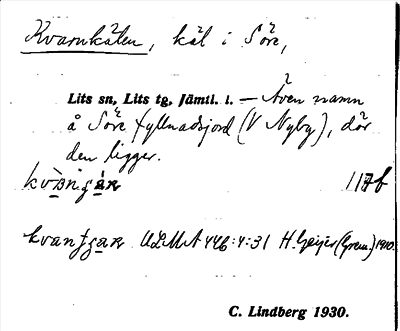 Kvarnkälen, käl i Söre,
Lits sn, Lits tg, Jämtl. l. — Även namn
å Söre fyllnadsjord (V Nyby), där
den ligger.
117b
ULMA 446:4:31 H. Geijer (Gren.) 1910.
C. Lindberg 1930.